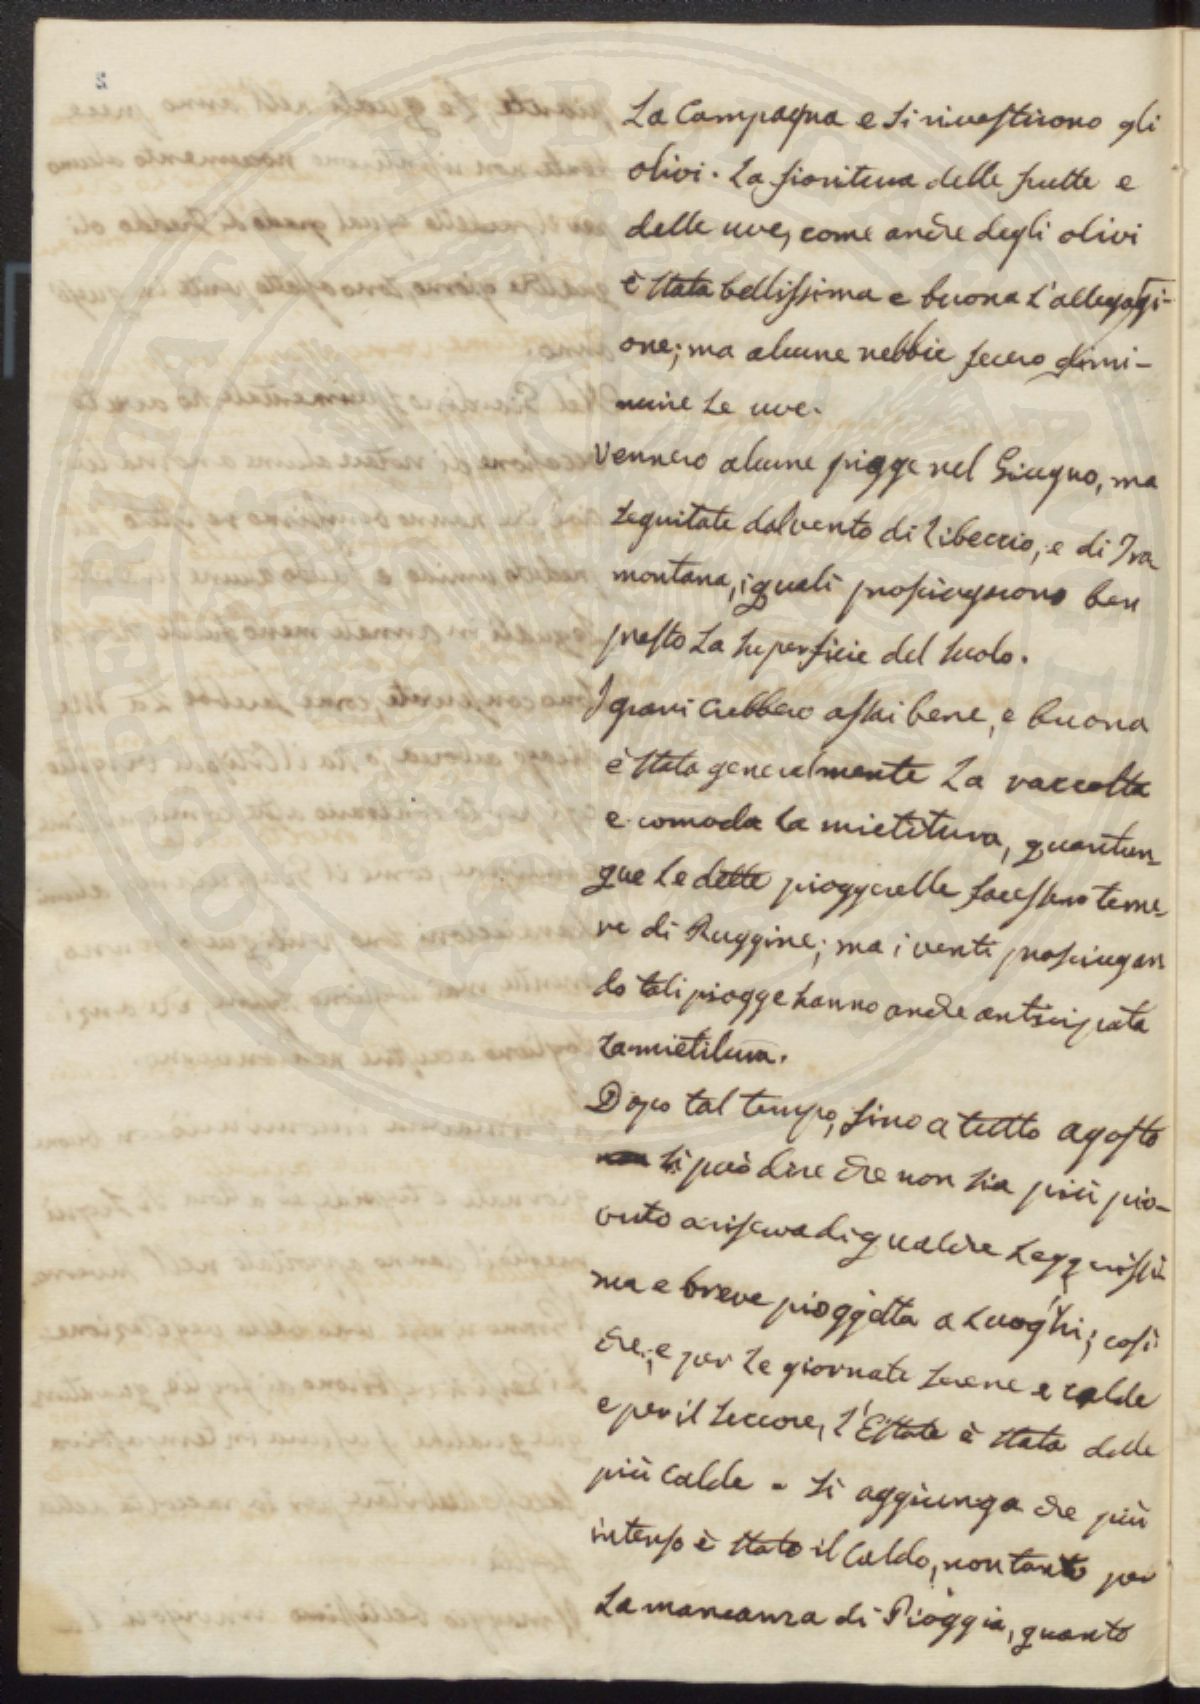 La Campagna e si rivestirono gli
olivi. La fioritura delle frutte e
delle uve, come anche degli olivi
è stata bellissima e buona l'allegagi-
one; ma alcune nebbie fecero dimi-
nuire le uve.
Vennero alcune piogge nel Giugno, ma
seguitate dal vento di Libeccio, e di Tra
montana, i quali prosciugarono ben
presto la superficie del suolo.
I grani crebbero assai bene, e buona
è stata generalmente la raccolta
e comoda la mietitura, quantun-
que le dette pioggerelle facessero teme-
re di Ruggine; ma i venti prosciugan
do tali piogge hanno anche anticipata
la mietitura.
Dopo tal tempo, sino a tutto agosto
si può dire che non sia più pio-
vuto a riserva di qualche leggerissi
ma e breve pioggetta a luoghi; così
che, e per le giornate serene e calde
e per il seccore, l'Estate è stata delle
più calde. Si aggiunga che più
intenso è stato il caldo, non tanto per
la mancanza di Pioggia, quanto